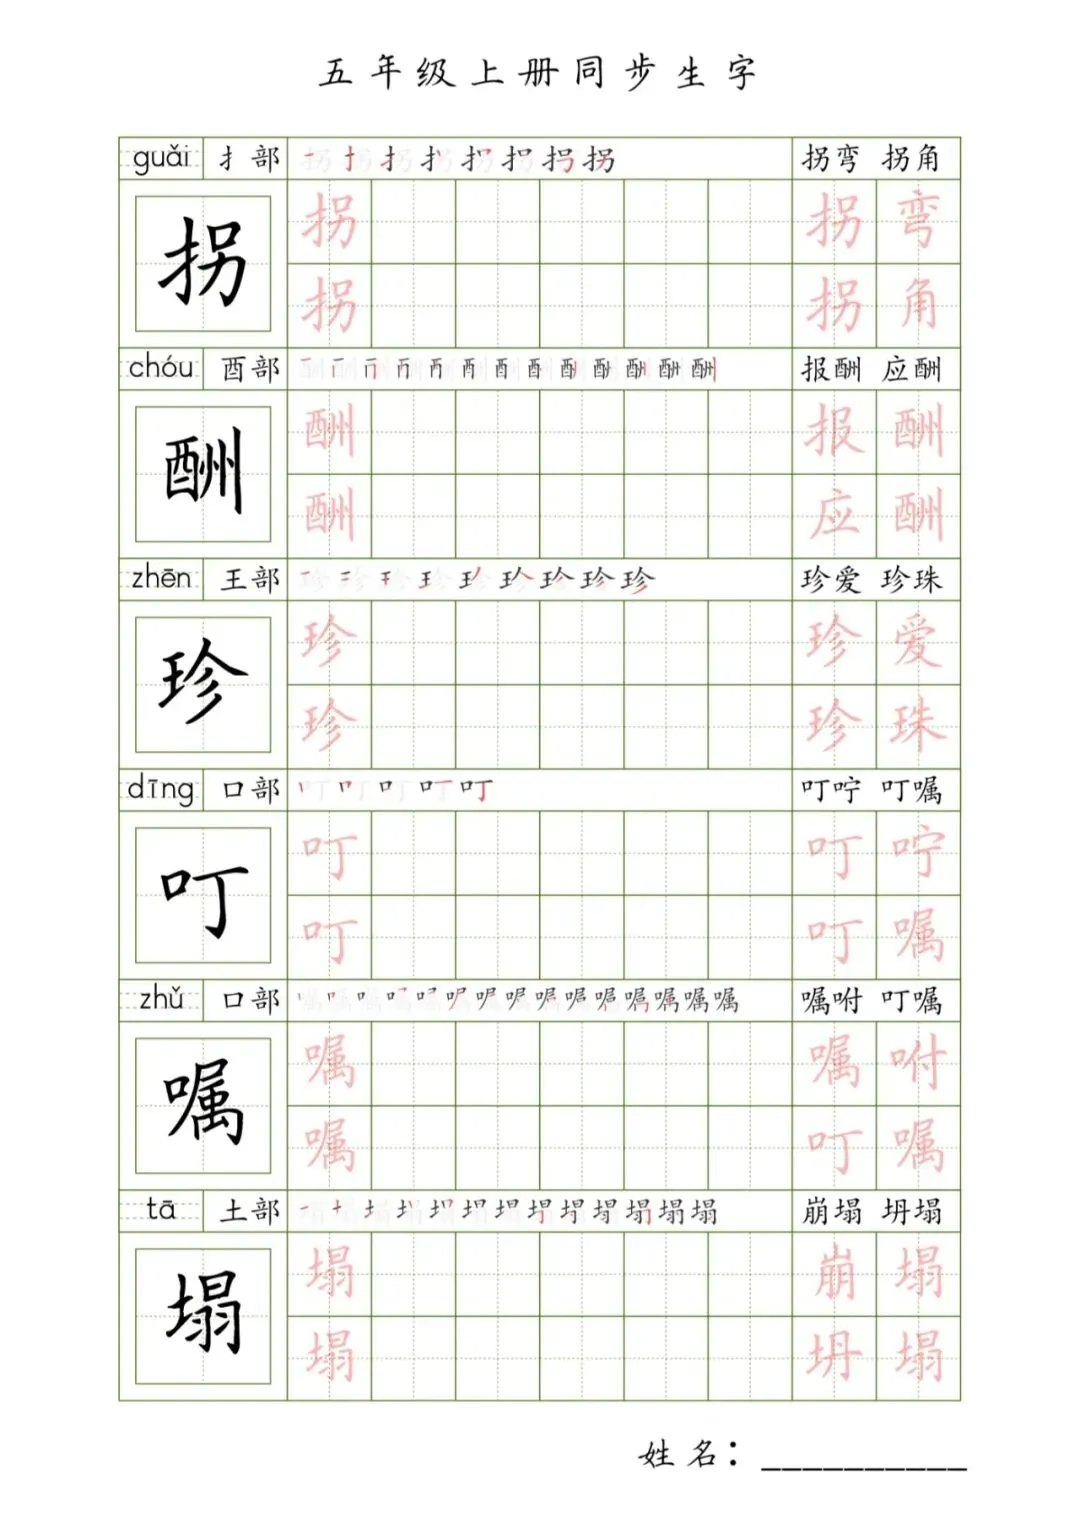 五年级上册同步生字
guǎi 扌部 拐弯 拐角
拐 拐 拐弯
拐 拐角
chóu 酉部 报酬 应酬
酬 酬 报酬
酬 应酬
zhēn 王部 珍爱 珍珠
珍 珍 珍爱
珍 珍珠
dīng 口部 叮咛 叮嘱
叮 叮 叮咛
叮 叮嘱
zhǔ 口部 嘱咐 叮嘱
嘱 嘱 嘱咐
嘱 叮嘱
tā 土部 崩塌 坍塌
塌 塌 崩塌
塌 坍塌
姓名：__________